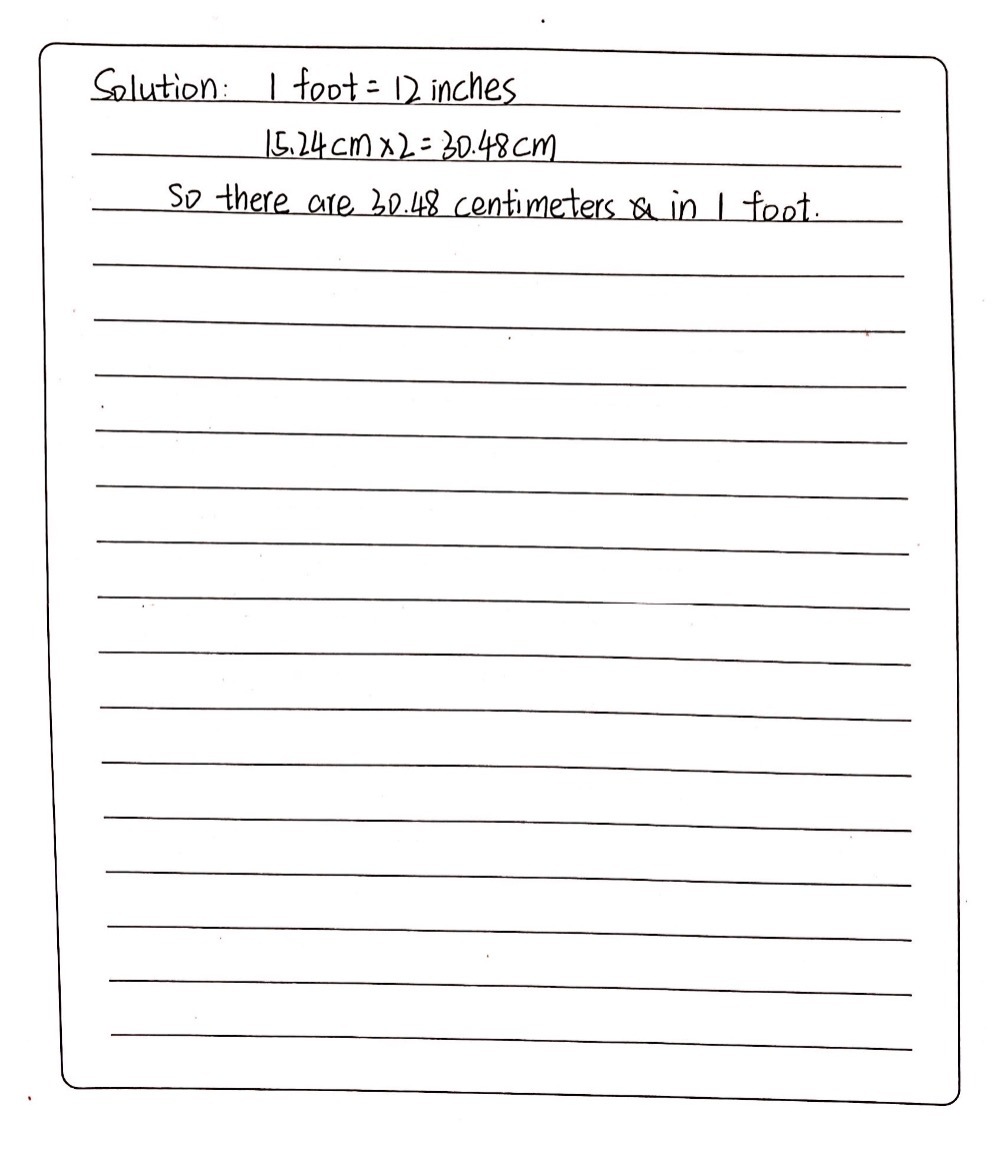 Solution: 1 foot = 12 inches
15.24cm × 2 = 30.48cm
So there are 30.48 centimeters in 1 foot.